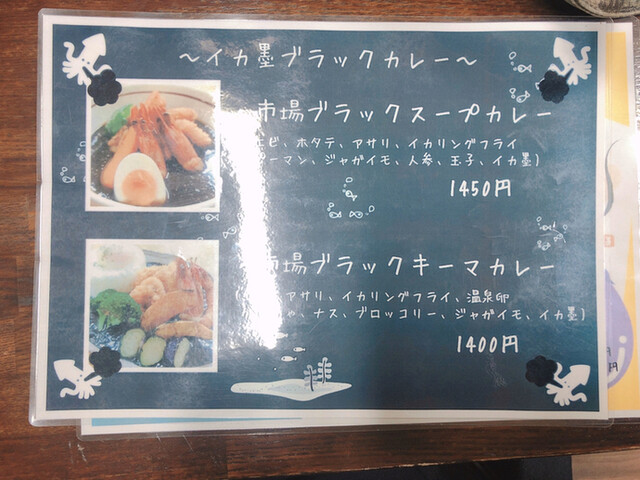 ~イカ墨ブラックカレー~
市場ブラックスープカレー
エビ、ホタテ、アサリ、イカリングフライ
ーマン、ジャガイモ、人参、玉子、イカ墨)
1450円
市場ブラックキーマカレー
アサリ、イカリングフライ、温泉卵
ナス、ブロッコリー、ジャガイモ、イカ墨)
1400円